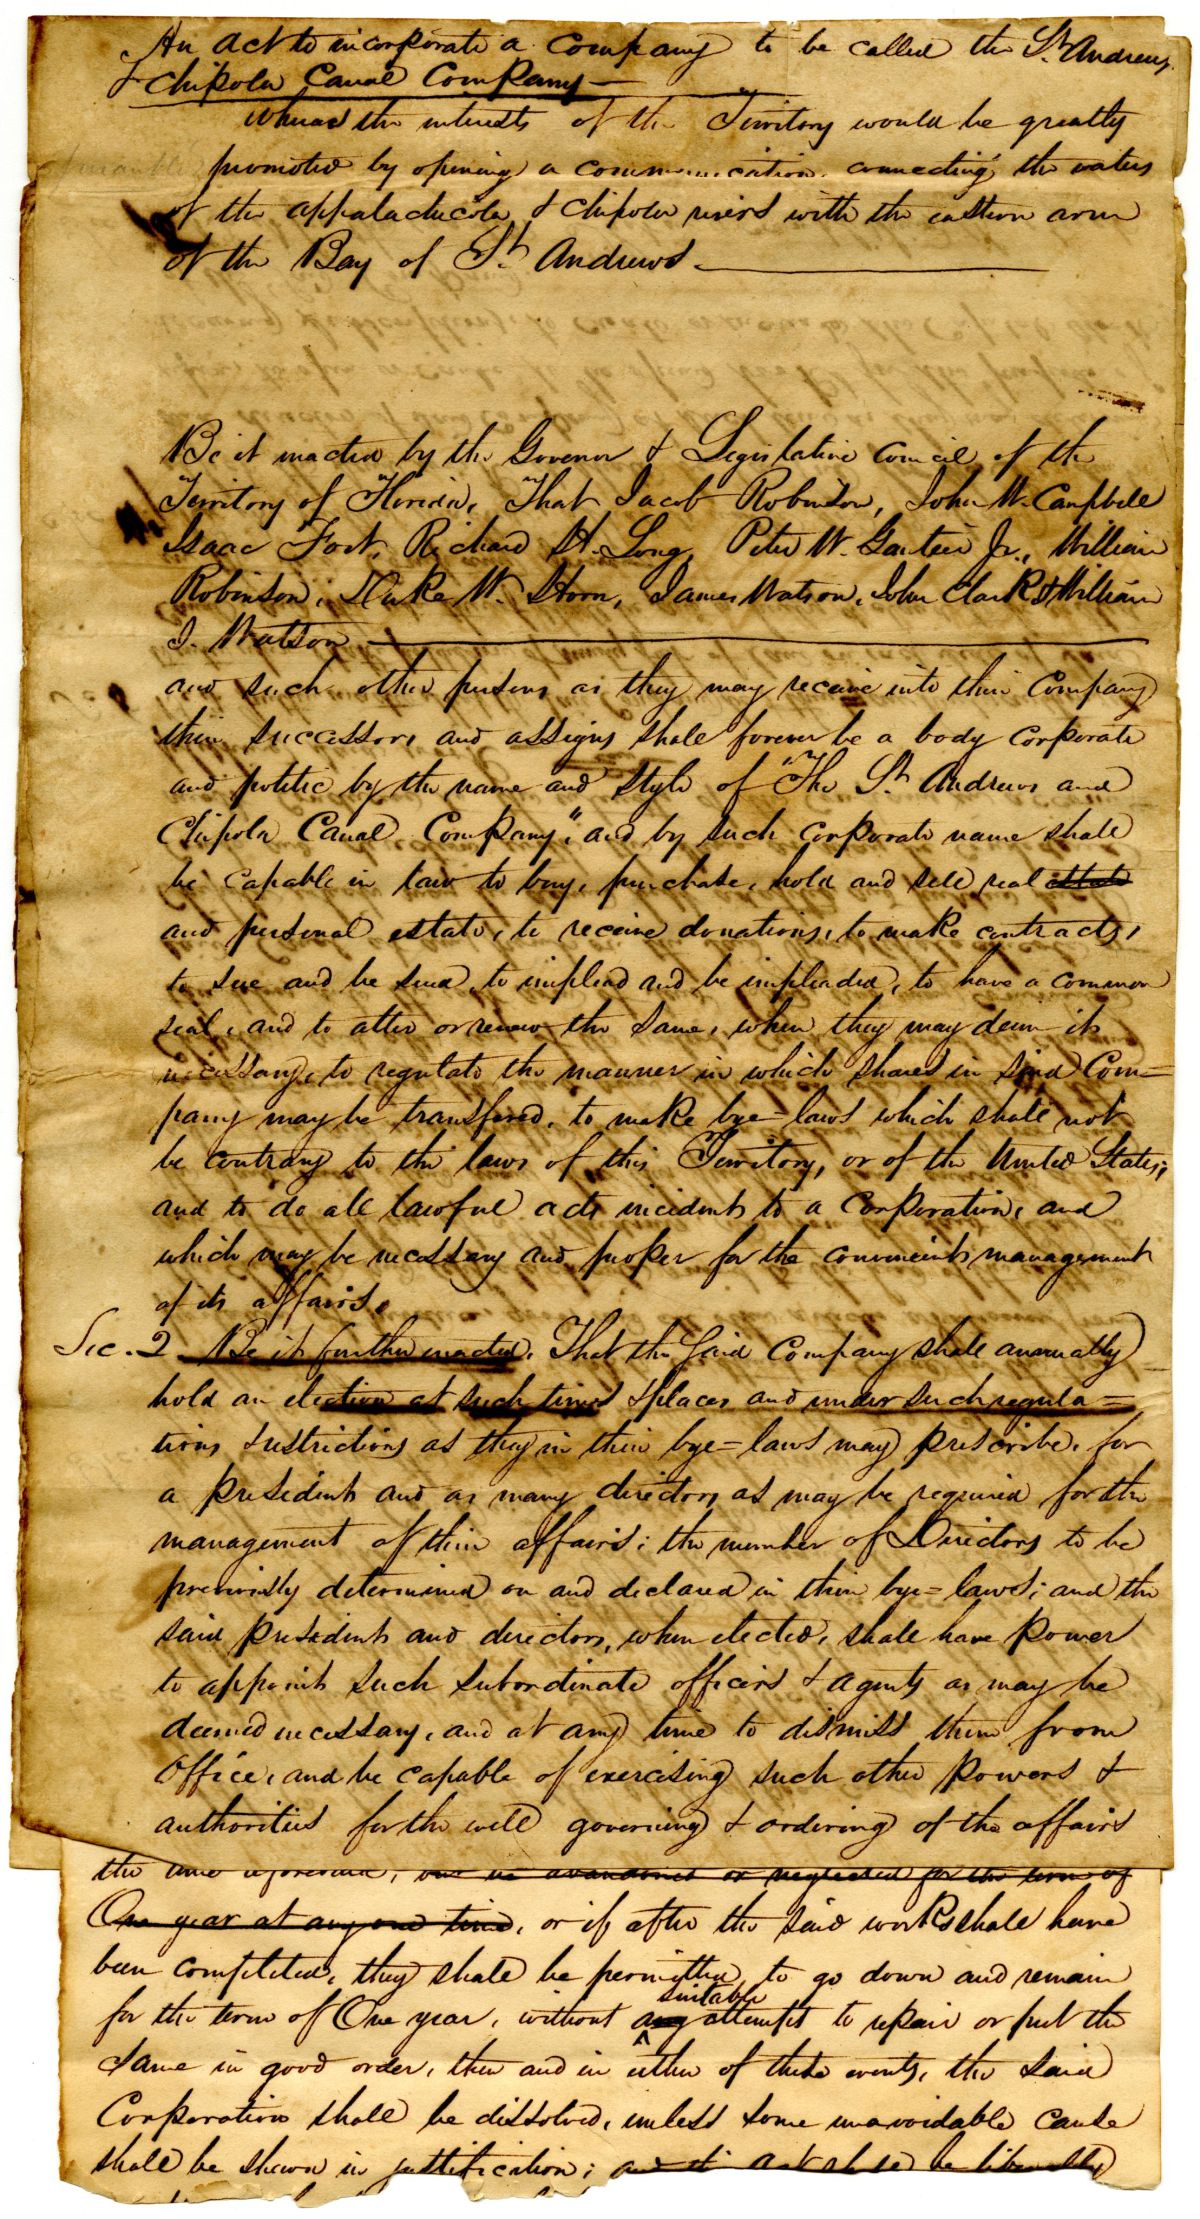 An act to incorporate a Company to be called the St. Andrews
& Chipola Canal Company —
Whereas the interests of the Territory would be greatly
promoted by opening a communication connecting the waters
of the appalachicola & chipola rivers with the eastern arm
of the Bay of St. Andrews.
Be it enacted by the Govenor & Legislative Council of the
Territory of Florida, That Jacob Robinson, John W. Campbell
Isaac Fort, Richard H. Long, Peter W. Gautier Jr., William
Robinson, Duke W. Horn, James Watson, John Clark & William
J. Watson
and such other persons as they may receive into their Company
their successors and assigns shall forever be a body corporate
and politic by the name and style of "The St. Andrews and
Chipola Canal Company", and by such corporate name shall
be capable in law to buy, purchase, hold and sell real estate
and personal estate, to receive donations, to make contracts,
to sue and be sued, to implead and be impleaded, to have a common
seal, and to alter or renew the same, when they may deem it
necessary, to regulate the manner in which shares in said Com=
pany may be transfered, to make bye=laws which shall not
be contrary to the laws of this Territory, or of the United States,
and to do all lawful acts incident to a Corporation, and
which may be necessary and proper for the convenient management
of its affairs.
Sec. 2 Be it further enacted, That the said Company shall annually
hold an election at such times & places and under such regula=
tions & restrictions as they in their bye=laws may prescribe, for
a president and as many directors as may be required for the
management of their affairs; the number of Directors to be
previously determined on and declared in their bye=laws; and the
said president and directors, when elected, shall have power
to appoint such subordinate officers & agents as may be
deemed necessary, and at any time to dismiss them from
office, and be capable of exercising such other powers &
authorities for the well governing & ordering of the affairs
the time aforesaid, or be abandoned or neglected for the term of
One year at any one time, or if after the said works shall have
been completed, they shall be permitted to go down and remain
for the term of One year, without any suitable attempt to repair or put the
same in good order, then and in either of these events, the said
Corporation shall be dissolved, unless some unavoidable cause
shall be shown in justification; and act shall be liberally